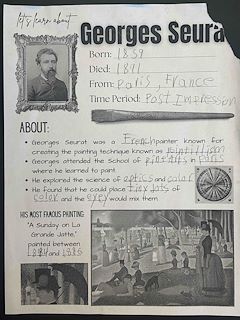 let's learn about
Georges Seura
Born: 1859
Died: 1891
From: Paris, France
Time Period: Post Impression
ABOUT:
• Georges Seurat was a French painter known for
creating the painting technique known as Pointillism
• Georges attended the School of Fine Arts in Paris
where he learned to paint.
• He explored the science of optics and color
• He found that he could place tiny dots of
color and the eyes would mix them.
HIS MOST FAMOUS PAINTING
"A Sunday on La
Grande Jatte,"
painted between
1884 and 1885